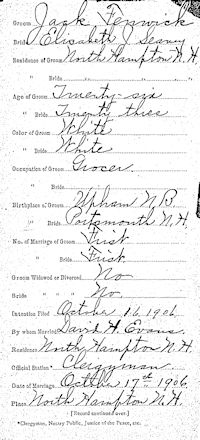 Groom Jack Fenwick
Bride Elizabeth J
Residence of Groom North Hampton N.H.
" Bride " " "
Age of Groom Twenty-six
" Bride Twenty three
Color of Groom White
" Bride White
Occupation of Groom Grocer
" Bride
Birthplace of Groom Upham N.B.
" Bride Portsmouth N.H.
No. of Marriage of Groom First
" Bride First
Groom Widowed or Divorced No
Bride " " No.
Intention Filed October 16, 1906
By whom Married David H. Evans.
Residence North Hampton N.H.
Official Station* Clergyman.
Date of Marriage, October 17th 1906.
Place, North Hampton N.H.
[Record continued over.]
*Clergyman, Notary Public, Justice of the Peace, etc.